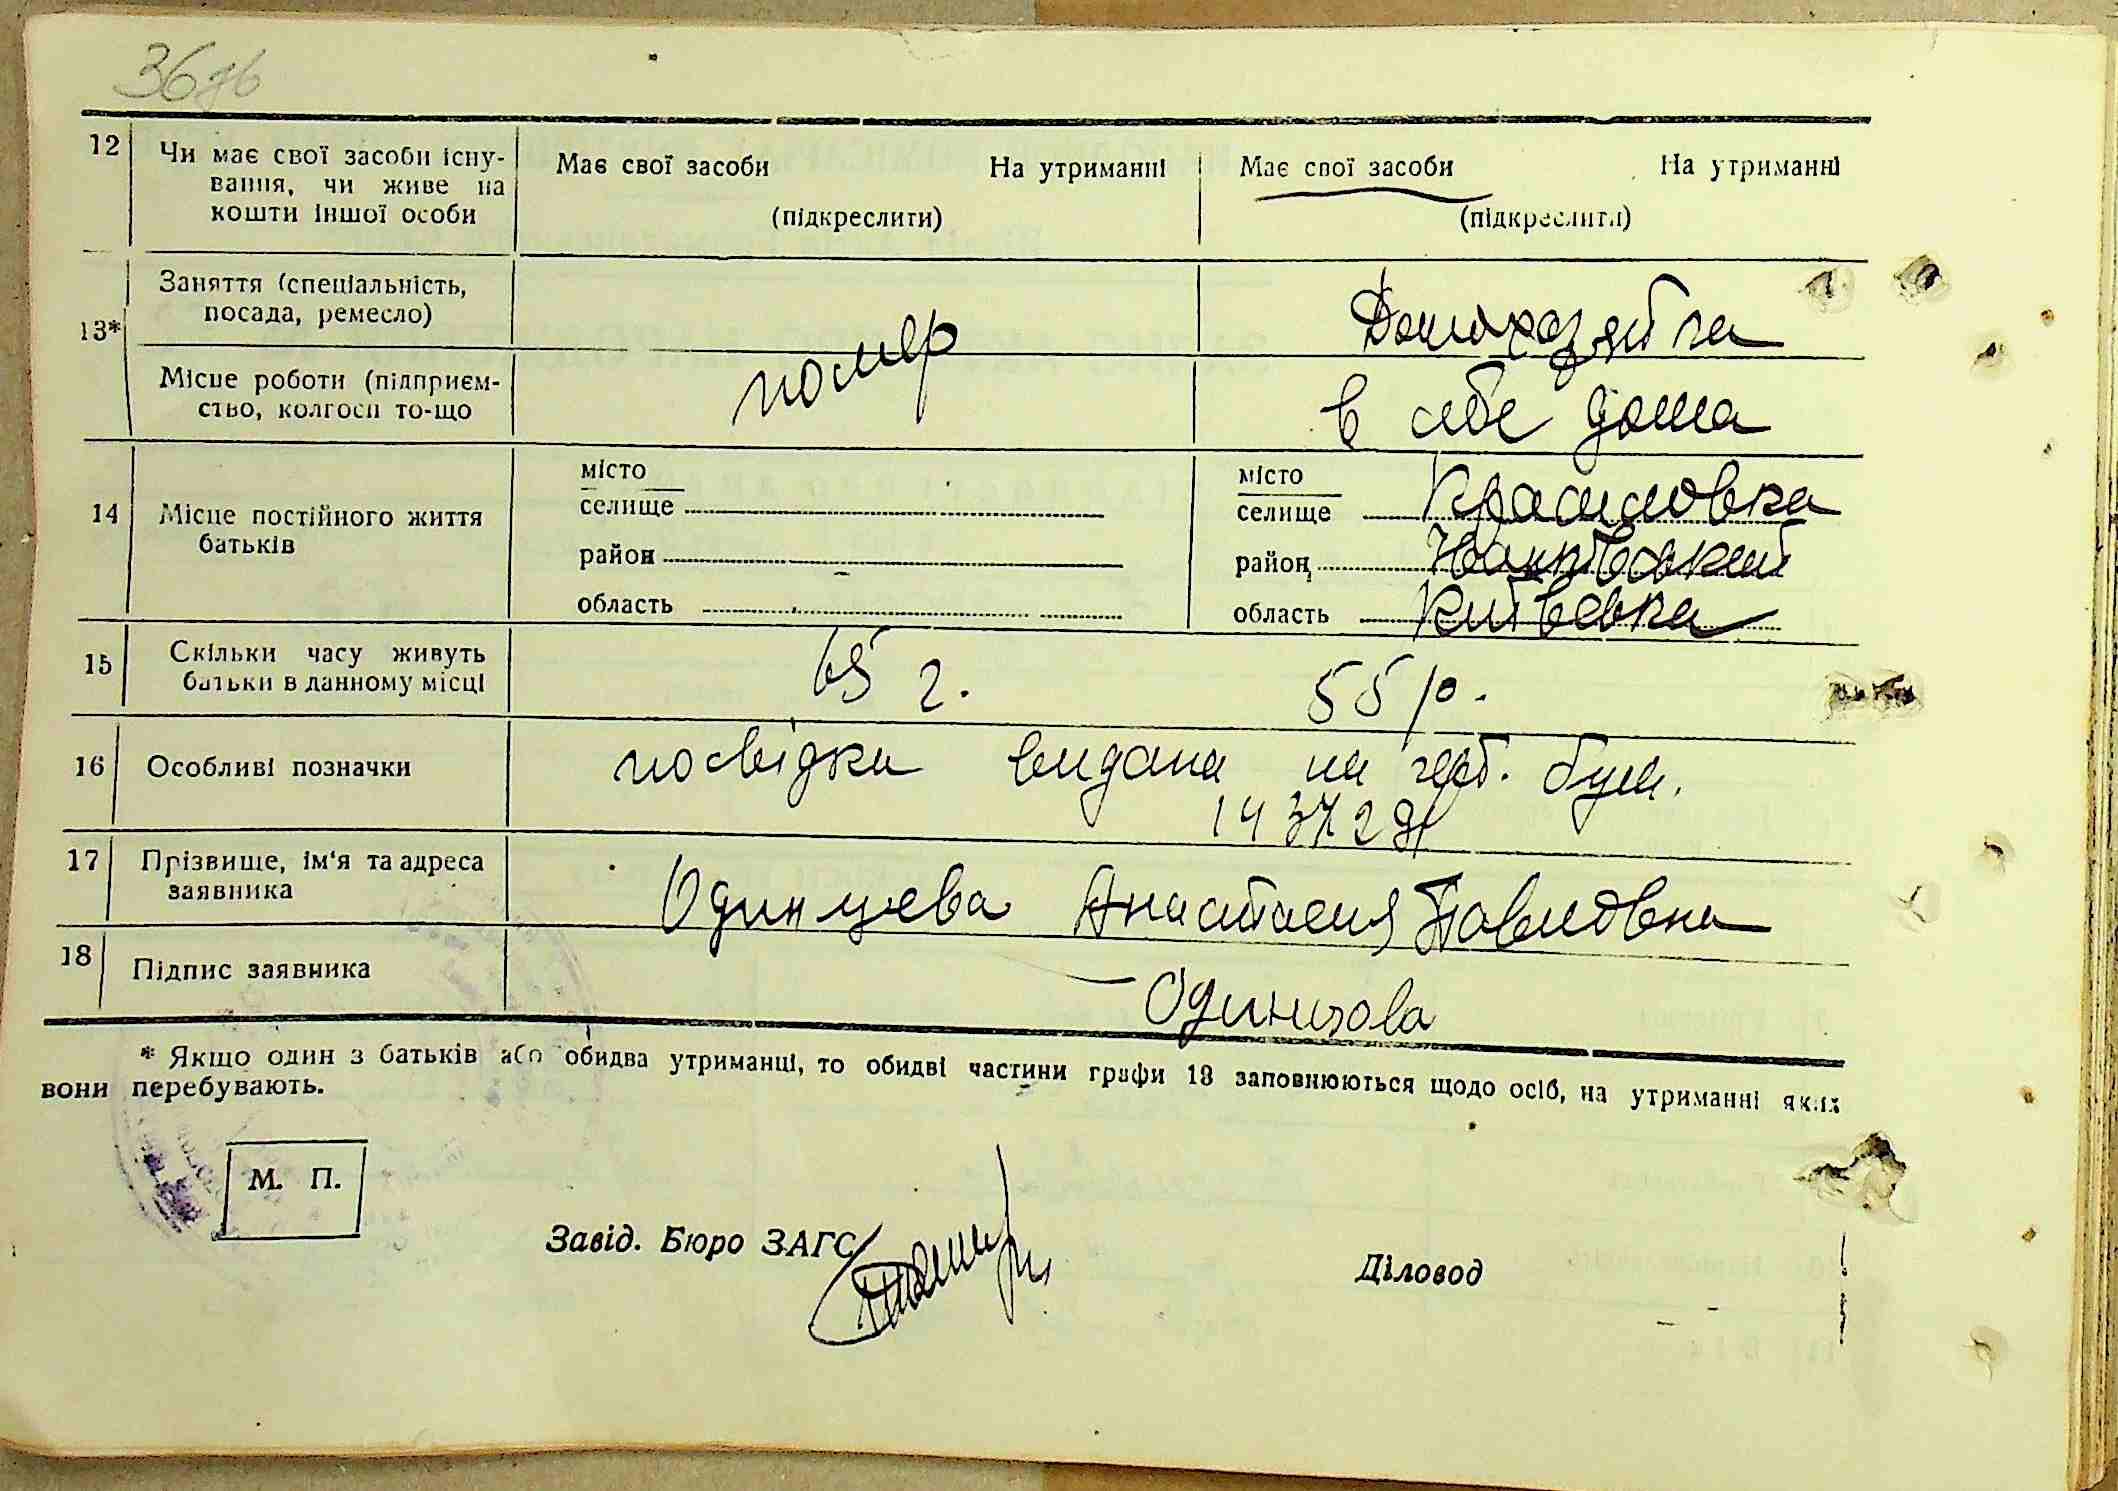 36
12 Чи має свої засоби існу-
вання, чи живе на
кошти іншої особи
Має свої засоби На утриманні
(підкреслити)
Має свої засоби На утриманні
(підкреслити)
13*
Заняття (спеціальність,
посада, ремесло)
Домохозяйка
помер
Місце роботи (підприєм-
ство, колгосп то-що
в себе дома
14 Місце постійного життя
батьків
місто
селище
район
область
місто
селище Красиловка
район
область Київска
15 Скільки часу живуть
батьки в данному місці
65 г. 55 р.
16 Особливі позначки
посвідка видана на герб. бум.
17 Прізвище, ім'я та адреса
заявника
Одинцева Анастасия Павловна
18 Підпис заявника
Одинцова
* Якщо один з батьків або обидва утриманці, то обидві частини графи 13 заповнюються щодо осіб, на утриманні яких
вони перебувають.
М. П.
Завід. Бюро ЗАГС
Діловод